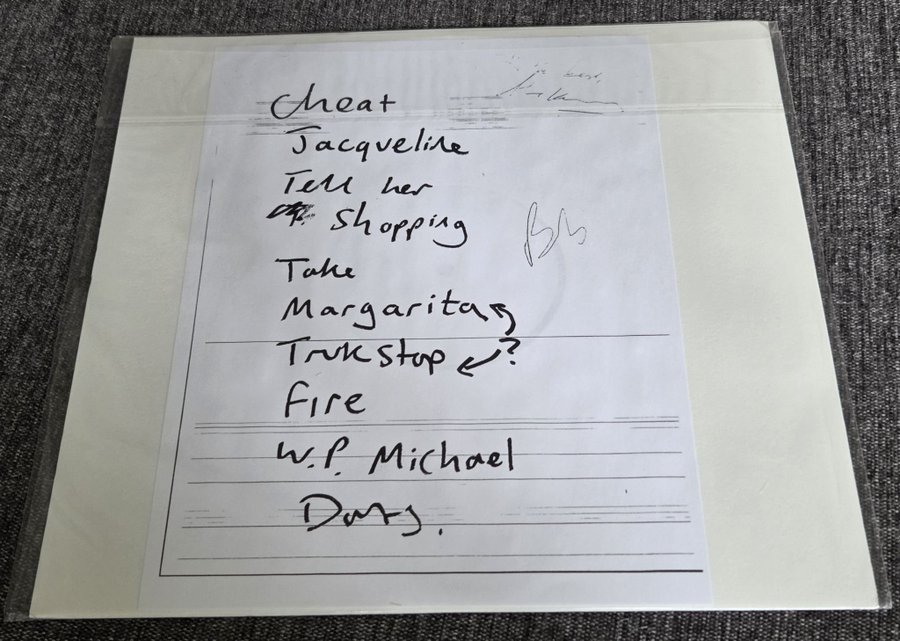 Cheat
Jacqueline
Tell her
Shopping
Take
Margarita
Trukstop ?
Fire
W.P. Michael
Darts.